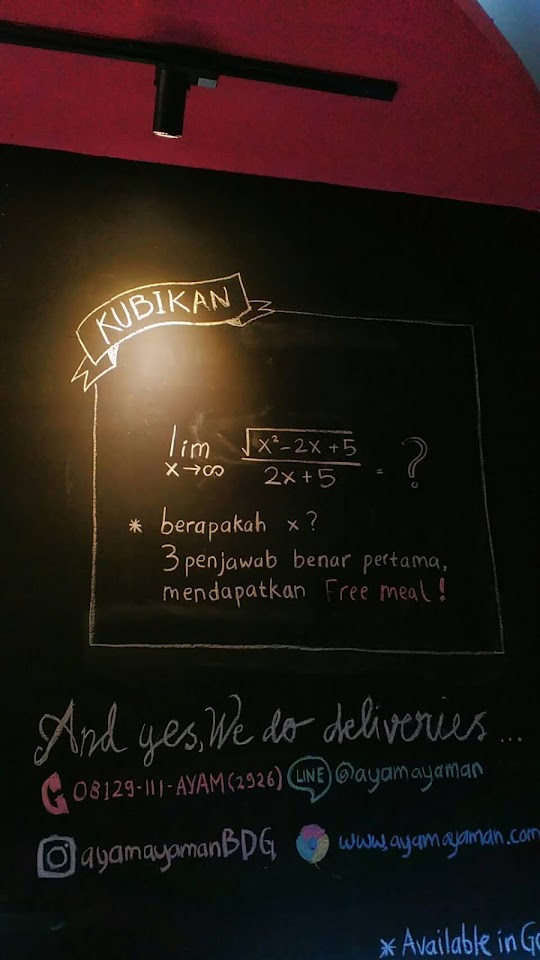 KUBIKAN
lim √x²-2x+5
x→∞ 2x+5 = ?
* berapakah x?
3 penjawab benar pertama,
mendapatkan Free meal!
And yes, We do deliveries...
08129-111-AYAM(2926) LINE @ayamayaman
ayamayamanBDG www.ayamayaman.com
* Available in